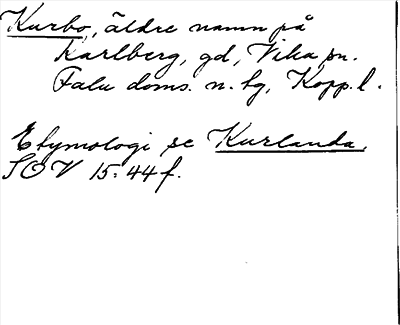 Kurbo, äldre namn på
Karlberg, gd, Vika sn.
Falu doms. n. tg, Kopp. l.
Etymologi se Kurlanda,
SOV 15:44 f.